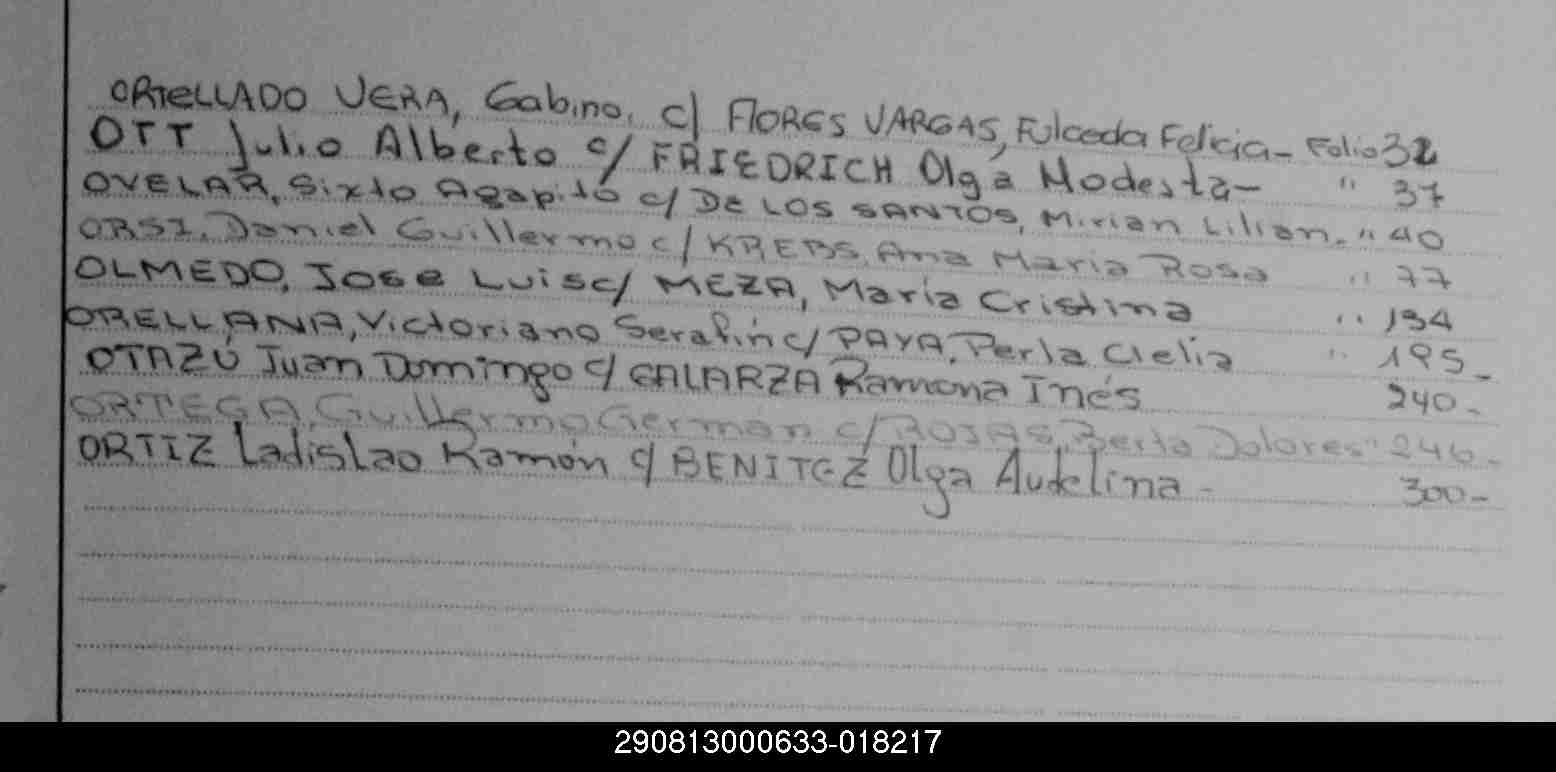 ORTELLADO VERA, Gabino, c/ FLORES VARGAS, Fulceda Felicia - Folio 32
OTT Julio Alberto c/ FRIEDRICH Olga Modesta - " 37
OVELAR, Sixto Agapito c/ DE LOS SANTOS, Mirian Lilian. " 40
ORSI, Daniel Guillermo c/ KREBS, Ana Maria Rosa " 77
OLMEDO, Jose Luis c/ MEZA, María Cristina " 194
ORELLANA, Victoriano Serafin c/ PAYA, Perla Clelia " 195_
OTAZÚ Juan Domingo c/ GALARZA Ramona Inés 240-
ORTEGA, Guillermo Germán c/ ROJAS, Berta Dolores " 246-
ORTIZ Ladislao Ramón c/ BENITEZ Olga Audelina - 300-
290813000633-018217